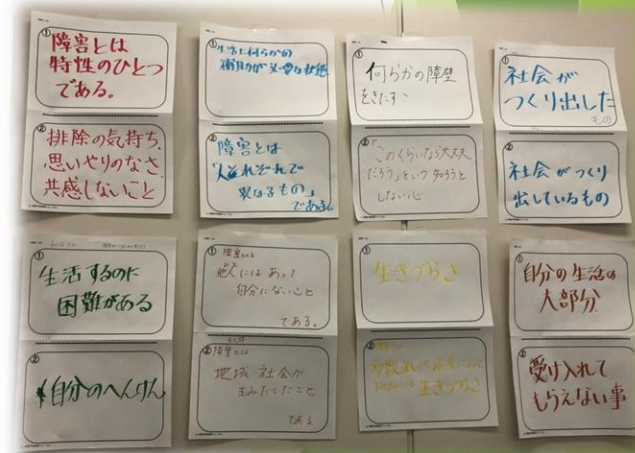 ①
障害とは
特性のひとつ
である。
②
排除の気持ち、
思いやりのなさ、
共感しないこと
①
生活に何らかの
補助が必要な状態
②
障害とは
「人それぞれで
異なるもの」
である。
①
何らかの障壁
をきたす
②
「このくらいなら大丈夫
だろう」という知ろうと
しない心
①
社会が
つくり出した
もの
②
社会がつくり
出しているもの
①
生活するのに
困難がある
②
自分のへんけん
①
障害とは
他人にはあって
自分にないこと
である。
②
障害とは
地域・社会が
生みだしたこと
である
①
生きづらさ
②
生きづらさ
①
自分の生活の
大部分
②
受け入れて
もらえない事